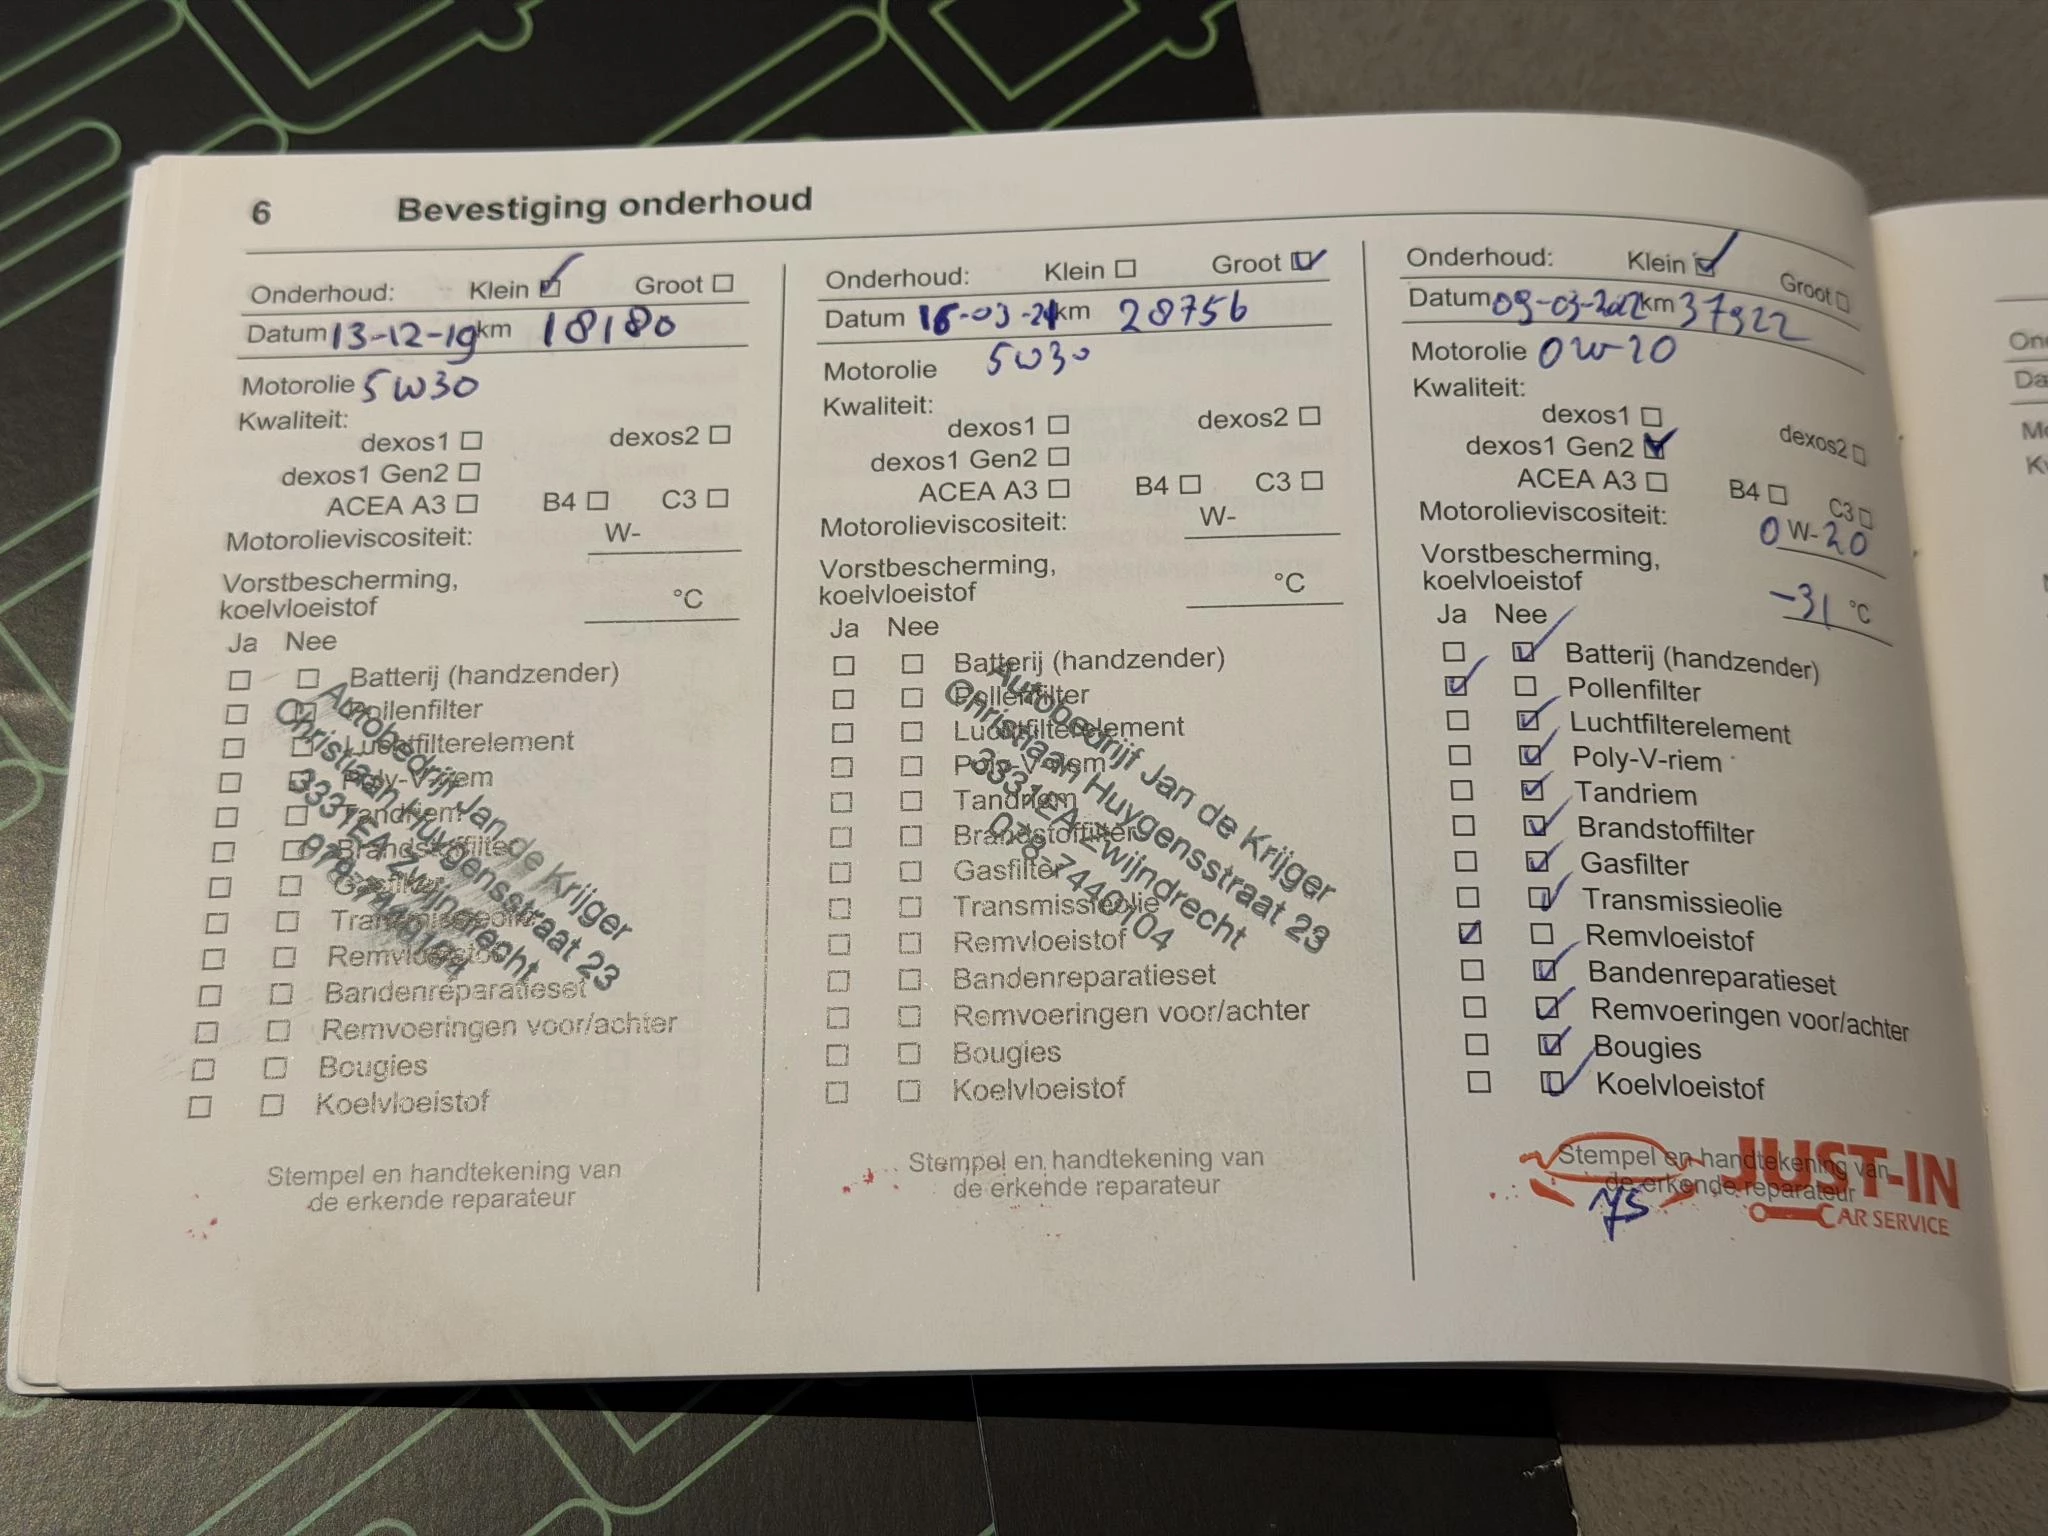 6 Bevestiging onderhoud
Onderhoud: Klein Groot
Datum 13-12-19 km 18180
Motorolie 5W30
Kwaliteit:
dexos1 dexos2
dexos1 Gen2
ACEA A3 B4 C3
Motorolieviscositeit: W-
Vorstbescherming,
koelvloeistof °C
Ja Nee
Batterij (handzender)
Pollenfilter
Luchtfilterelement
Poly-V-riem
Tandriem
Brandstoffilter
Gasfilter
Transmissieolie
Remvloeistof
Bandenreparatieset
Remvoeringen voor/achter
Bougies
Koelvloeistof
Autobedrijf Jan de Krijger
Christiaan Huygensstraat 23
3331EA Zwijndrecht
078-7440104
Stempel en handtekening van
de erkende reparateur
Onderhoud: Klein Groot
Datum 16-03-21 km 28756
Motorolie 5W30
Kwaliteit:
dexos1 dexos2
dexos1 Gen2
ACEA A3 B4 C3
Motorolieviscositeit: W-
Vorstbescherming,
koelvloeistof °C
Ja Nee
Batterij (handzender)
Pollenfilter
Luchtfilterelement
Poly-V-riem
Tandriem
Brandstoffilter
Gasfilter
Transmissieolie
Remvloeistof
Bandenreparatieset
Remvoeringen voor/achter
Bougies
Koelvloeistof
Autobedrijf Jan de Krijger
Christiaan Huygensstraat 23
3331EA Zwijndrecht
078-7440104
Stempel en handtekening van
de erkende reparateur
Onderhoud: Klein Groot
Datum 09-03-2022 km 37922
Motorolie 0W-20
Kwaliteit:
dexos1 dexos2
dexos1 Gen2
ACEA A3 B4 C3
Motorolieviscositeit: 0 W- 20
Vorstbescherming,
koelvloeistof -31 °C
Ja Nee
Batterij (handzender)
Pollenfilter
Luchtfilterelement
Poly-V-riem
Tandriem
Brandstoffilter
Gasfilter
Transmissieolie
Remvloeistof
Bandenreparatieset
Remvoeringen voor/achter
Bougies
Koelvloeistof
Stempel en handtekening van
de erkende reparateur
JUST-IN
CAR SERVICE